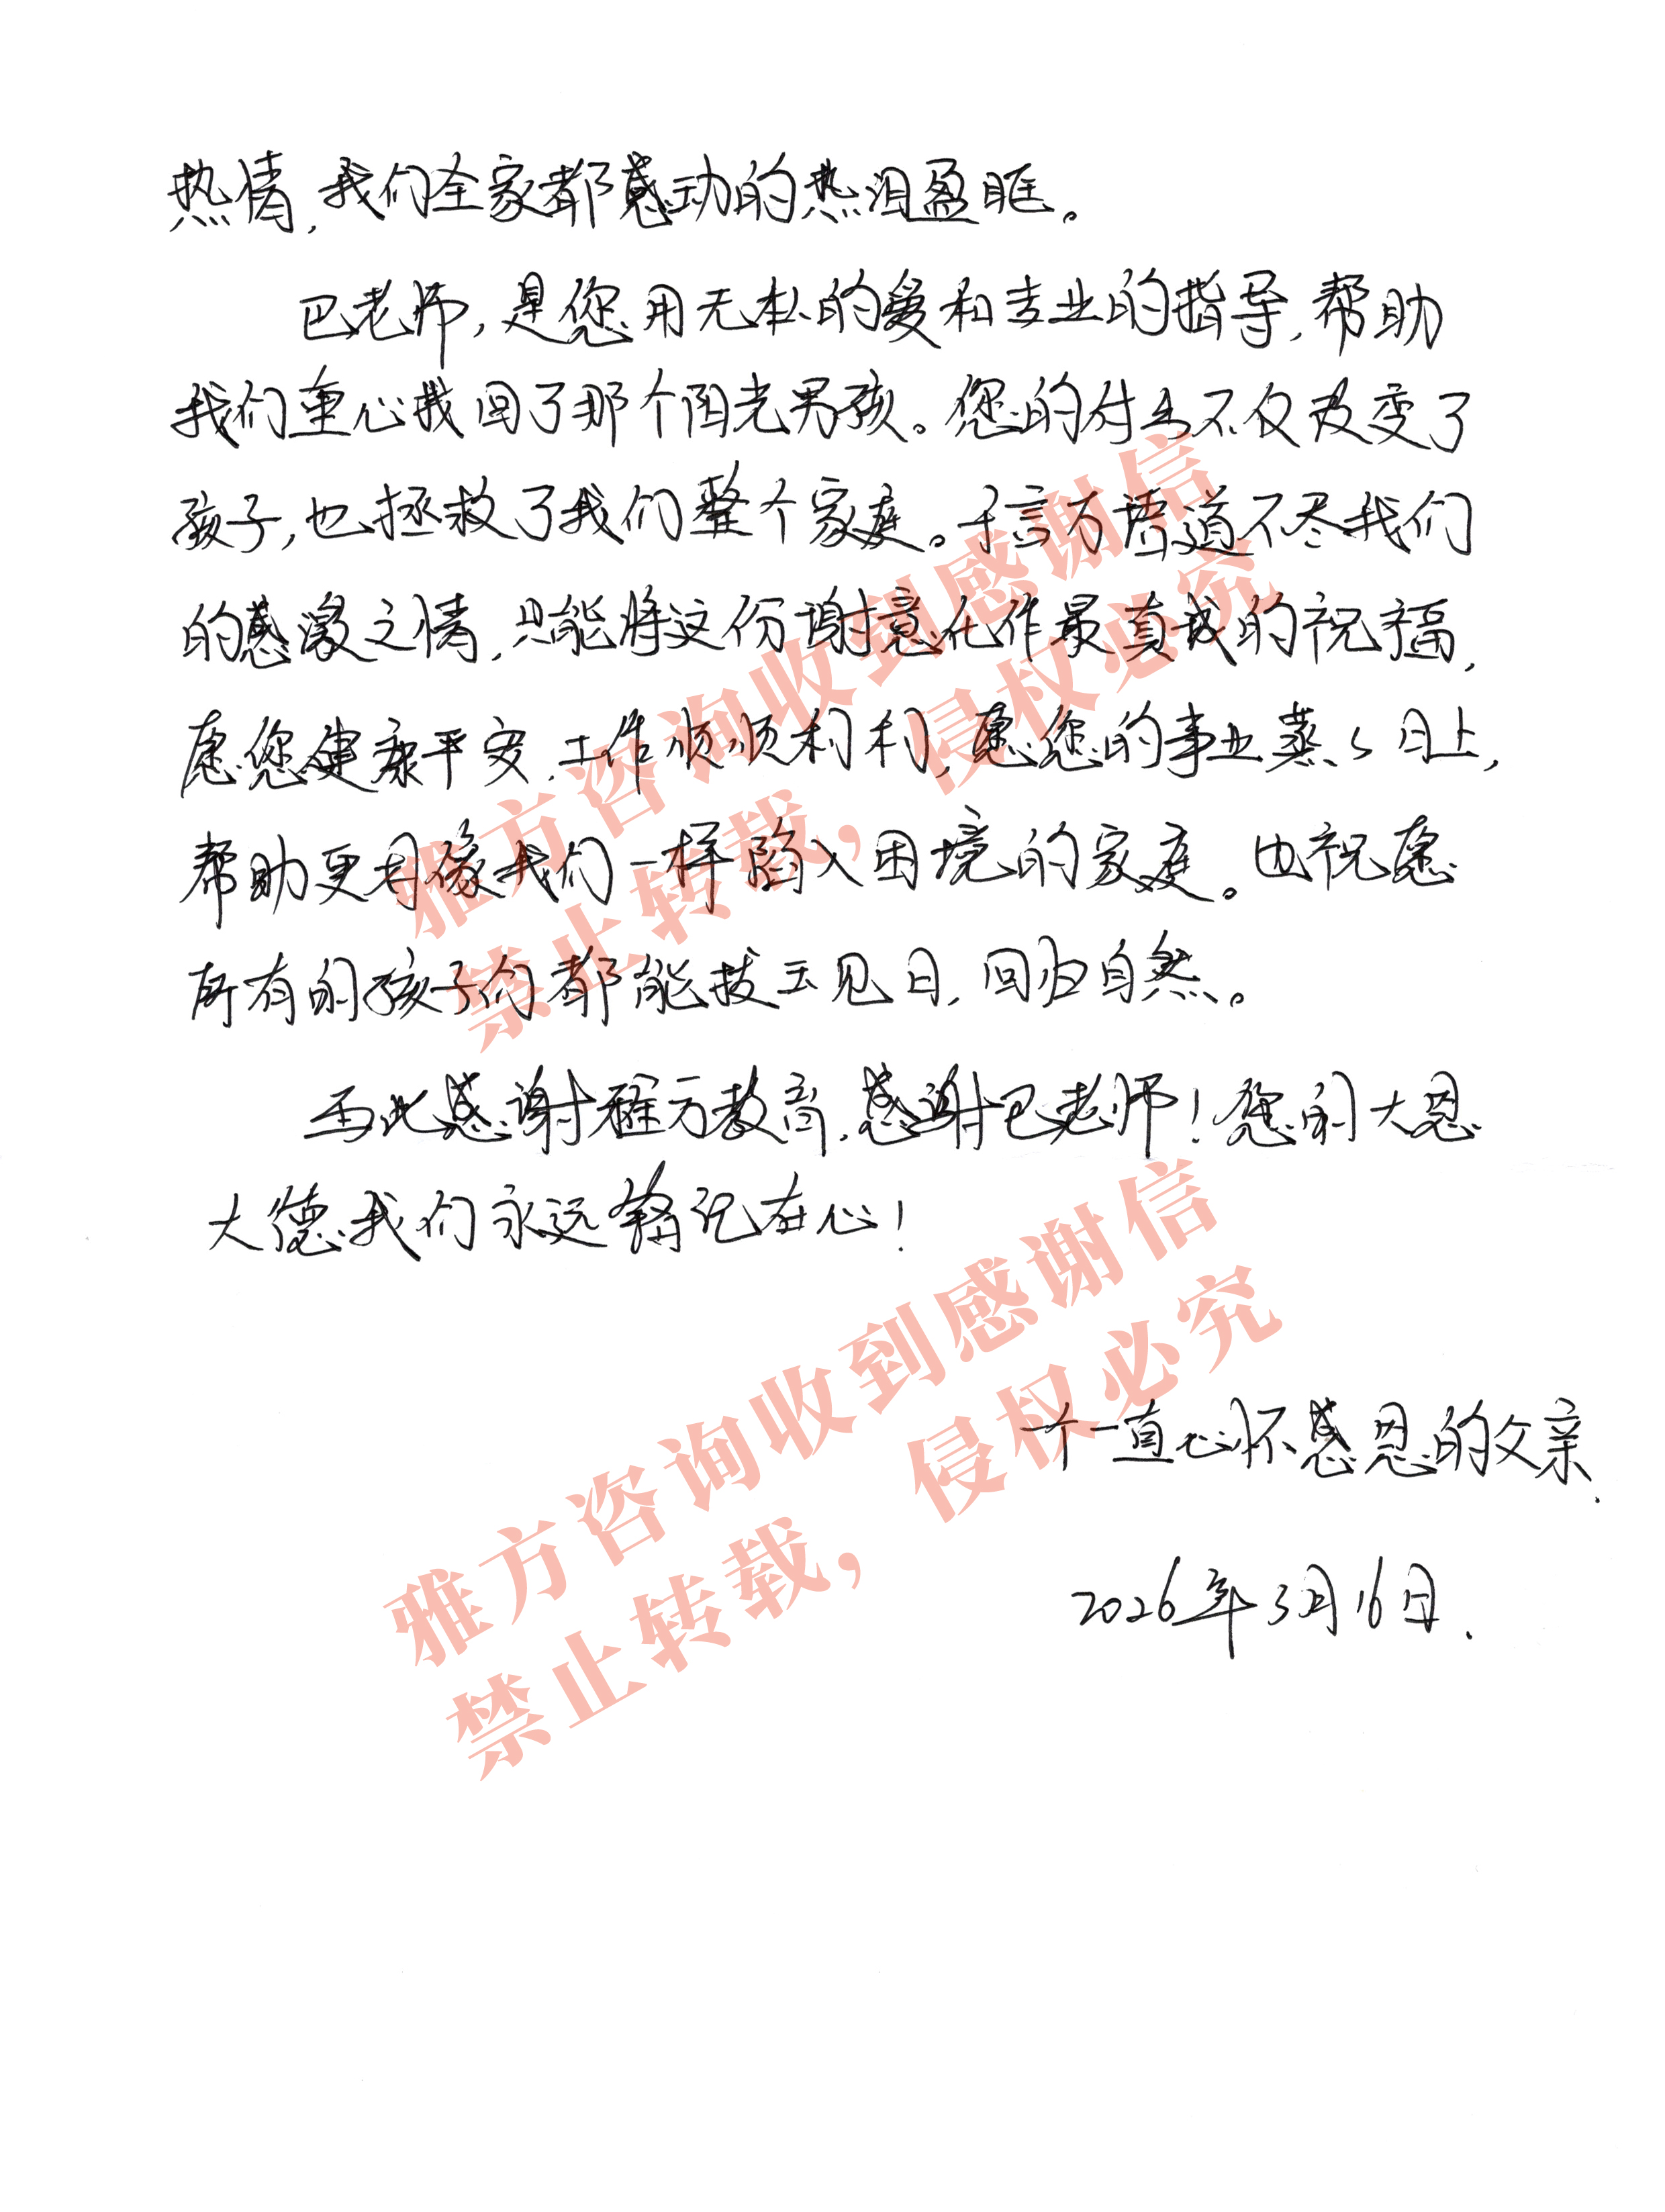 热情，我们全家都感动的热泪盈眶。
巴老师，是您用无私的爱和专业的指导，帮助
我们重心找回了那个阳光男孩。您的付出不仅改变了
孩子，也拯救了我们整个家庭。千言万语道不尽我们
的感激之情，只能将这份谢意化作最真诚的祝福，
愿您健康平安，工作顺顺利利，愿您的事业蒸蒸日上，
帮助更多像我们一样陷入困境的家庭。也祝愿
所有的孩子们都能拔云见日，回归自然。
再此感谢雅方教育，感谢巴老师！您的大恩
大德我们永远铭记在心！
一个一直心怀感恩的父亲.
2026年3月16日.
雅方咨询收到感谢信
禁止转载，侵权必究
雅方咨询收到感谢信
禁止转载，侵权必究